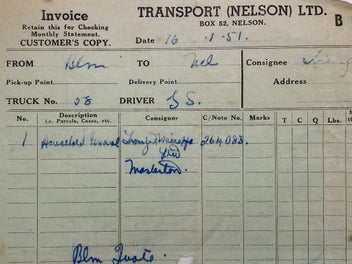 Invoice
Retain this for Checking
Monthly Statement.
CUSTOMER'S COPY.
TRANSPORT (NELSON) LTD.
BOX 52, NELSON.
Date 16 . 1 . 51. B
FROM Blm TO Nel Consignee
Pick-up Point Delivery Point Address
TRUCK No. 58 DRIVER GS.
No. Description Consigner C/Note No. Marks T C Q Lbs.
i.e. Parcels, Cases, etc.
1 Household Removal 264083.
Masterton.
Blm Quote